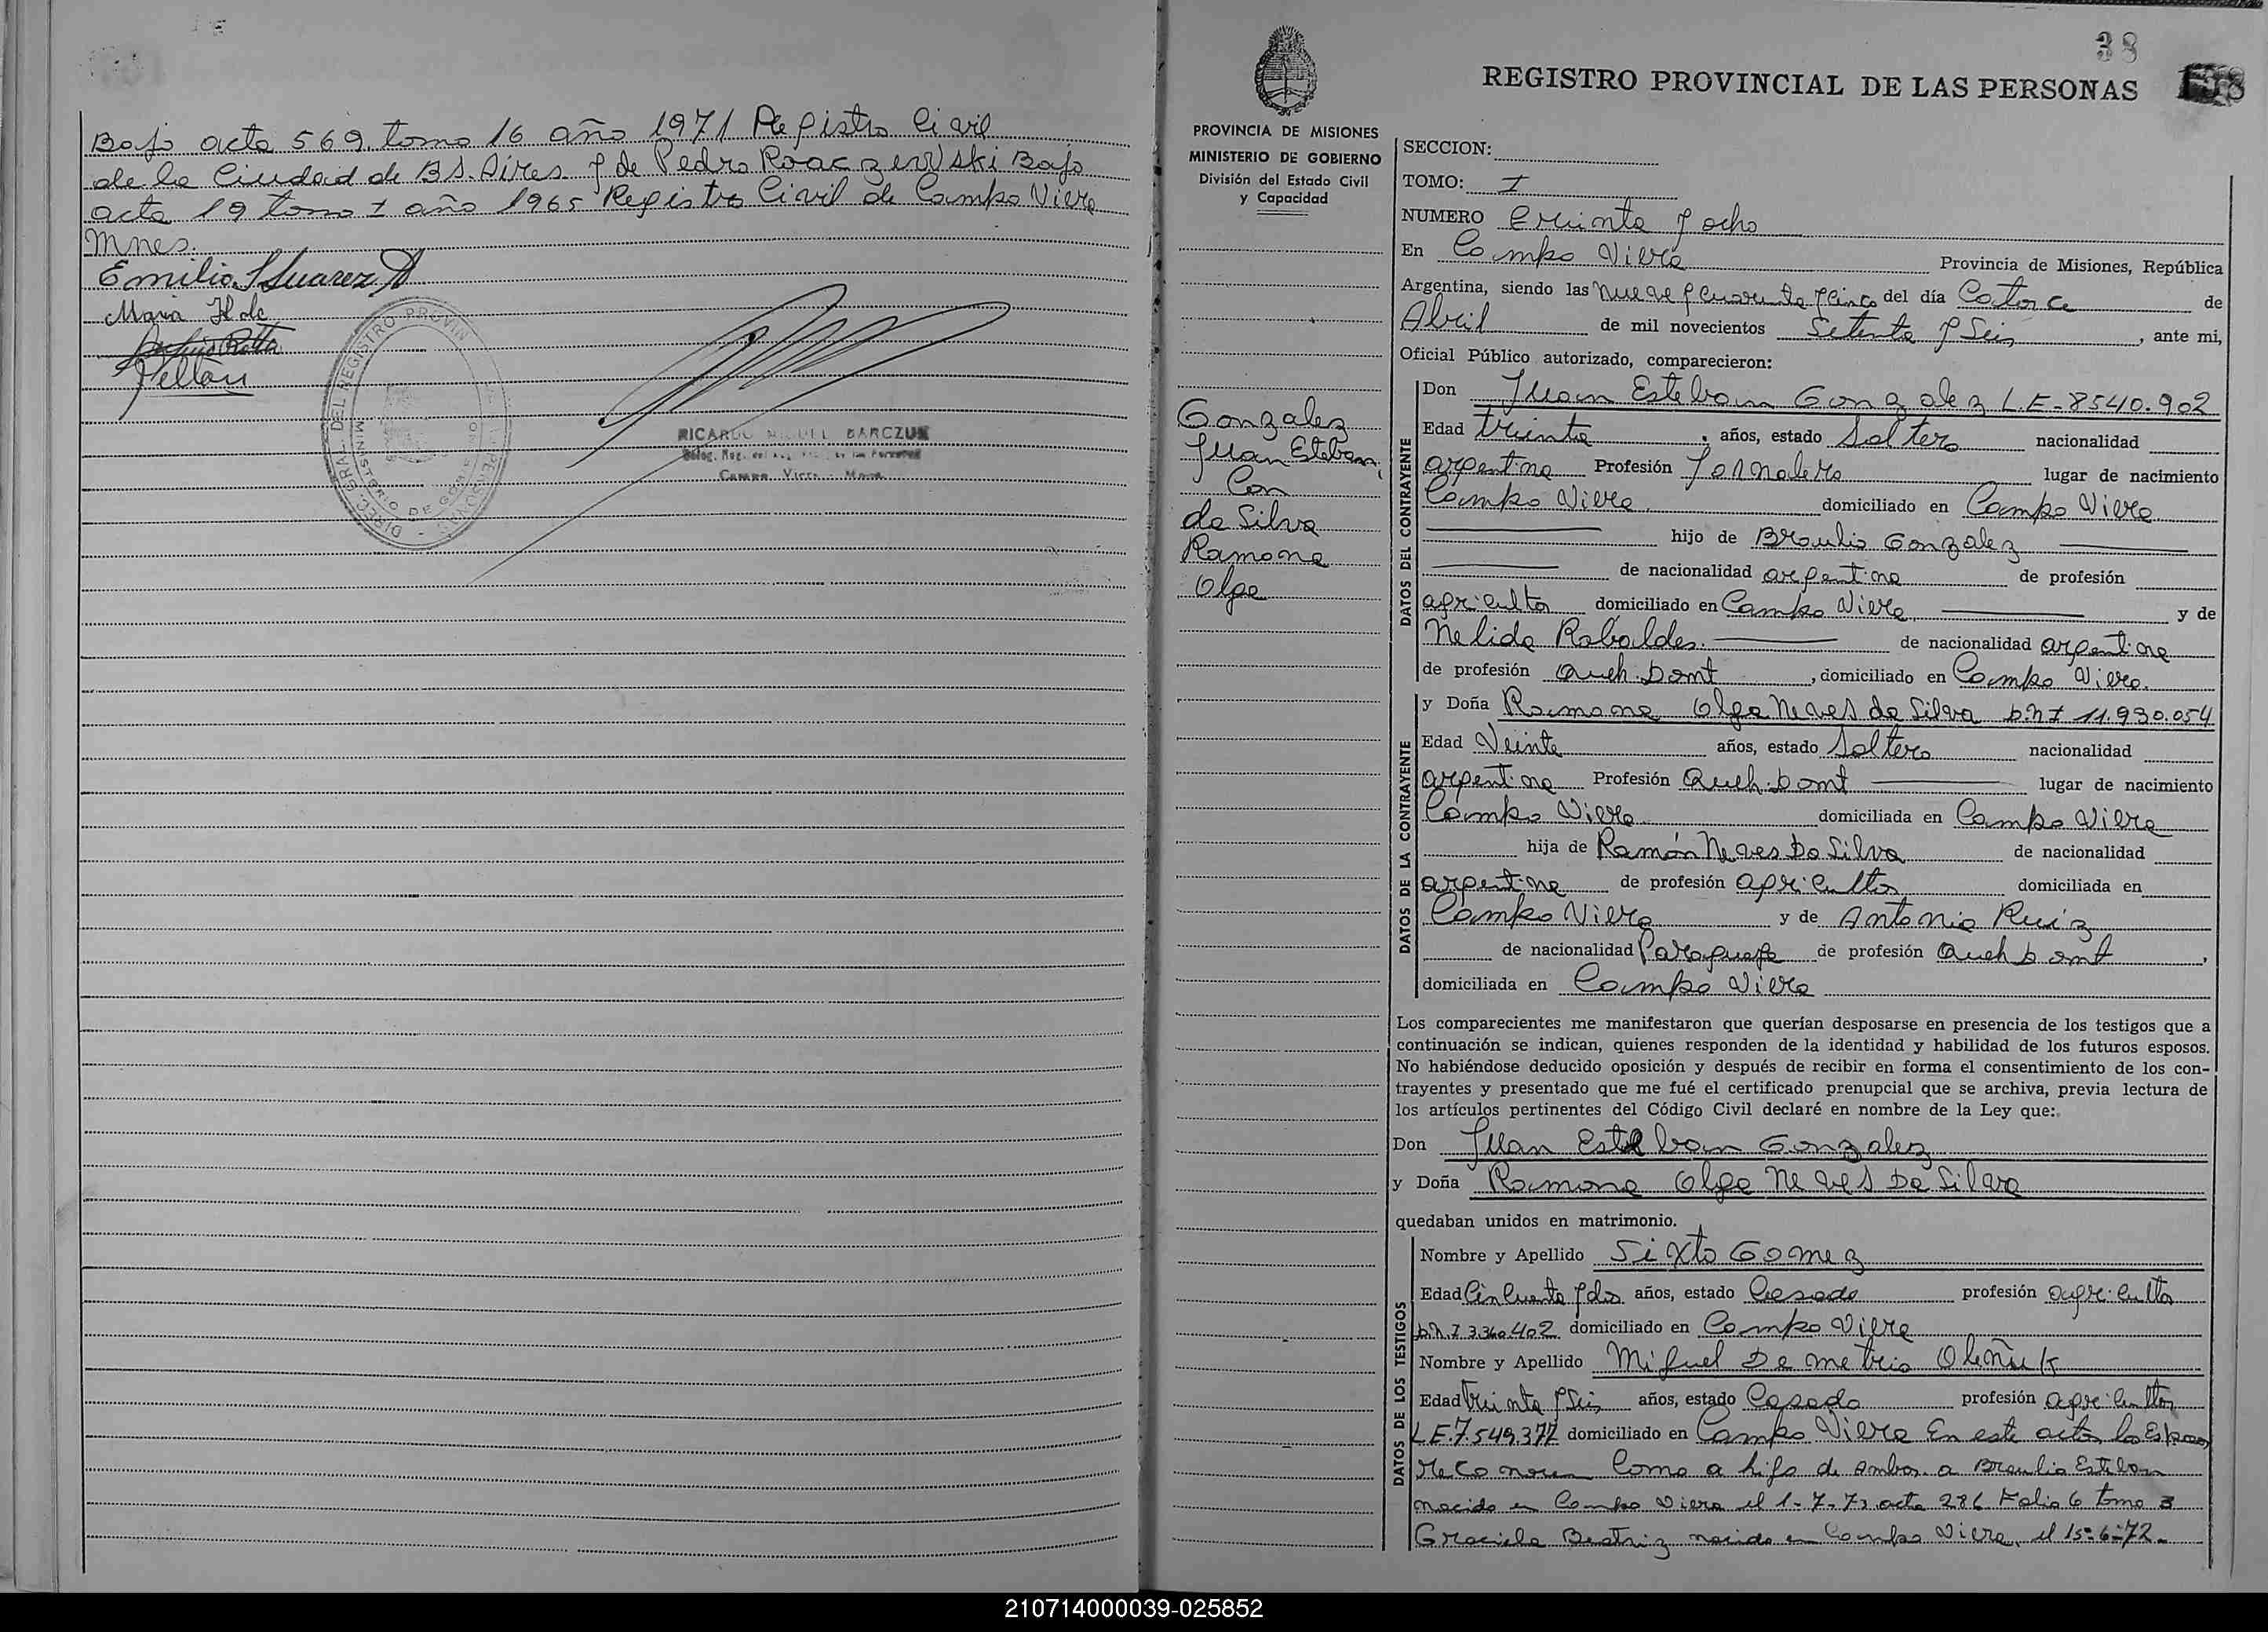 Bajo acta 569 tomo 16 año 1971 Registro Civil
de la Ciudad de Bs. Aires y de Pedro Roaczewski Bajo
acta 19 tomo I año 1965 Registro Civil de Campo Viera
Mnes.
Emilio S Suarez
Maria H de
Pellan
DIREC. GRAL. DEL REGISTRO PROVIN
MINISTERIO DE GOBIERNO
RICARDO MIGUEL BARCZUK
Campo Viera - Mnes.
38
REGISTRO PROVINCIAL DE LAS PERSONAS
PROVINCIA DE MISIONES
MINISTERIO DE GOBIERNO
División del Estado Civil
y Capacidad
Gonzalez
Juan Esteban
Con
da Silva
Ramona
Olga
SECCION:
TOMO: I
NUMERO Treinta y ocho
En Campo Viera Provincia de Misiones, República
Argentina, siendo las nueve y cuarenta y cinco del día Catorce de
Abril de mil novecientos setenta y seis, ante mi,
Oficial Público autorizado, comparecieron:
DATOS DEL CONTRAYENTE
Don Juan Esteban Gonzalez L.E-8540.902
Edad treinta, años, estado Soltero nacionalidad
argentina Profesión Jornalero lugar de nacimiento
Campo Viera domiciliado en Campo Viera
hijo de Braulio Gonzalez
de nacionalidad argentina de profesión
agricultor domiciliado en Campo Viera y de
Nelida Robaldes. de nacionalidad argentina
de profesión Queh. Domt, domiciliado en Campo Viera.
DATOS DE LA CONTRAYENTE
y Doña Ramona Olga Neves da Silva D.N.I 11.930.054
Edad Veinte años, estado Soltera nacionalidad
argentina Profesión Queh. Domt lugar de nacimiento
Campo Viera domiciliada en Campo Viera
hija de Ramón Neves Da Silva de nacionalidad
argentina de profesión agricultor domiciliada en
Campo Viera y de Antonia Ruiz
de nacionalidad Paraguaya de profesión Queh Domt,
domiciliada en Campo Viera
Los comparecientes me manifestaron que querían desposarse en presencia de los testigos que a
continuación se indican, quienes responden de la identidad y habilidad de los futuros esposos.
No habiéndose deducido oposición y después de recibir en forma el consentimiento de los con-
trayentes y presentado que me fué el certificado prenupcial que se archiva, previa lectura de
los artículos pertinentes del Código Civil declaré en nombre de la Ley que:
Don Juan Esteban Gonzalez
y Doña Ramona Olga Neves Da Silva
quedaban unidos en matrimonio.
DATOS DE LOS TESTIGOS
Nombre y Apellido Sixto Gomez
Edad Cincuenta y dos años, estado Casado profesión agricultor
D.N.I 3.360.402 domiciliado en Campo Viera
Nombre y Apellido Miguel Demetrio Oleñuk
Edad treinta y seis años, estado Casado profesión agricultor
L.E.7.549.377 domiciliado en Campo Viera En este acto los Esposos
reconocen Como a hijo de ambos a Braulio Esteban
nacido en Campo Viera el 1-7-73 acta 286 Folio 6 tomo 3
Graciela Beatriz nacida en Campo Viera, el 15-6-72-
210714000039-025852